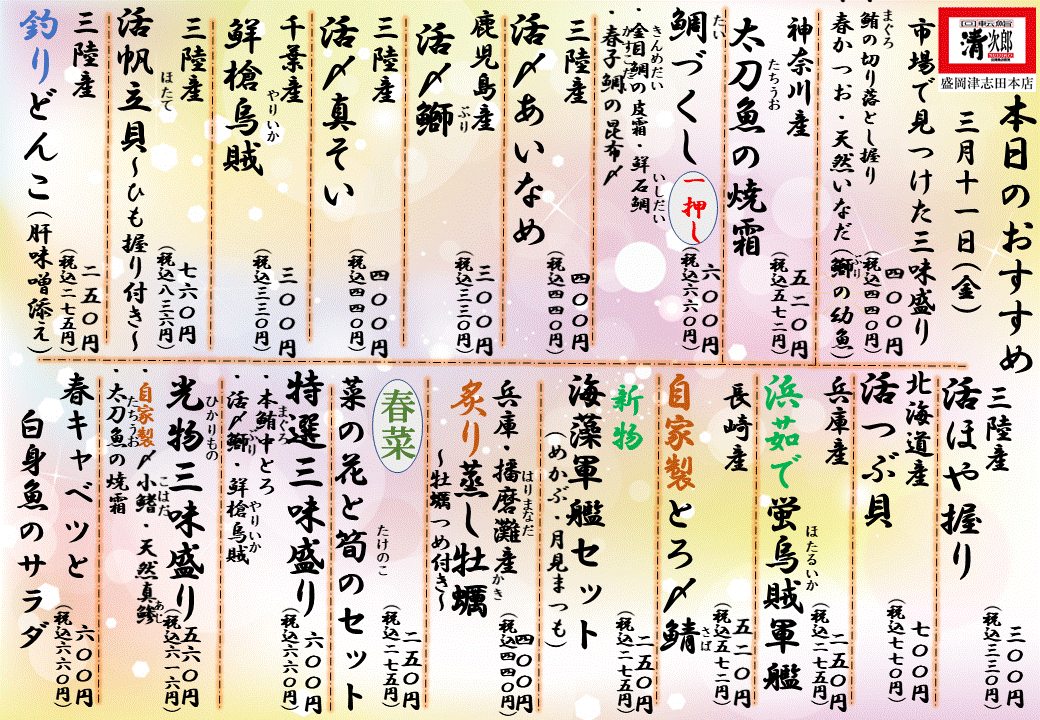 回転鮨
清次郎
盛岡津志田本店
本日のおすすめ
三月十一日(金)
市場で見つけた三味盛り
・鮪の切り落とし握り
まぐろ
・春かつお・天然いなだ(鰤の幼魚)
ぶり
四〇〇円
(税込四四〇円)
神奈川産
太刀魚の焼霜
たちうお
五二〇円
(税込五七二円)
鯛づくし
たい
一押し
・金目鯛の皮霜・鮮石鯛
きんめだい
いしだい
・春子鯛の昆布〆
かすごだい
六〇〇円
(税込六六〇円)
三陸産
活〆あいなめ
四〇〇円
(税込四四〇円)
鹿児島産
活〆鰤
ぶり
三〇〇円
(税込三三〇円)
三陸産
活〆真そい
四〇〇円
(税込四四〇円)
千葉産
鮮槍烏賊
やりいか
三〇〇円
(税込三三〇円)
三陸産
活帆立貝~ひも握り付き~
ほたて
七六〇円
(税込八三六円)
三陸産
釣りどんこ(肝味噌添え)
二五〇円
(税込二七五円)
三陸産
活ほや握り
三〇〇円
(税込三三〇円)
北海道産
活つぶ貝
七〇〇円
(税込七七〇円)
兵庫産
浜茹で蛍烏賊軍艦
ほたるいか
二五〇円
(税込二七五円)
長崎産
自家製とろ〆鯖
さば
五二〇円
(税込五七二円)
新物
海藻軍艦セット
(めかぶ・月見まつも)
二五〇円
(税込二七五円)
兵庫・播磨灘産
はりまなだ
炙り蒸し牡蠣
かき
~牡蠣つめ付き~
四〇〇円
(税込四四〇円)
春菜
菜の花と筍のセット
たけのこ
二五〇円
(税込二七五円)
特選三味盛り
・本鮪中とろ
まぐろ
・活〆鰤・鮮槍烏賊
ぶり
やりいか
六〇〇円
(税込六六〇円)
光物三味盛り
ひかりもの
・自家製〆小鰭・天然真鯵
こはだ
あじ
・太刀魚の焼霜
たちうお
五六〇円
(税込六一六円)
春キャベツと
白身魚のサラダ
六〇〇円
(税込六六〇円)